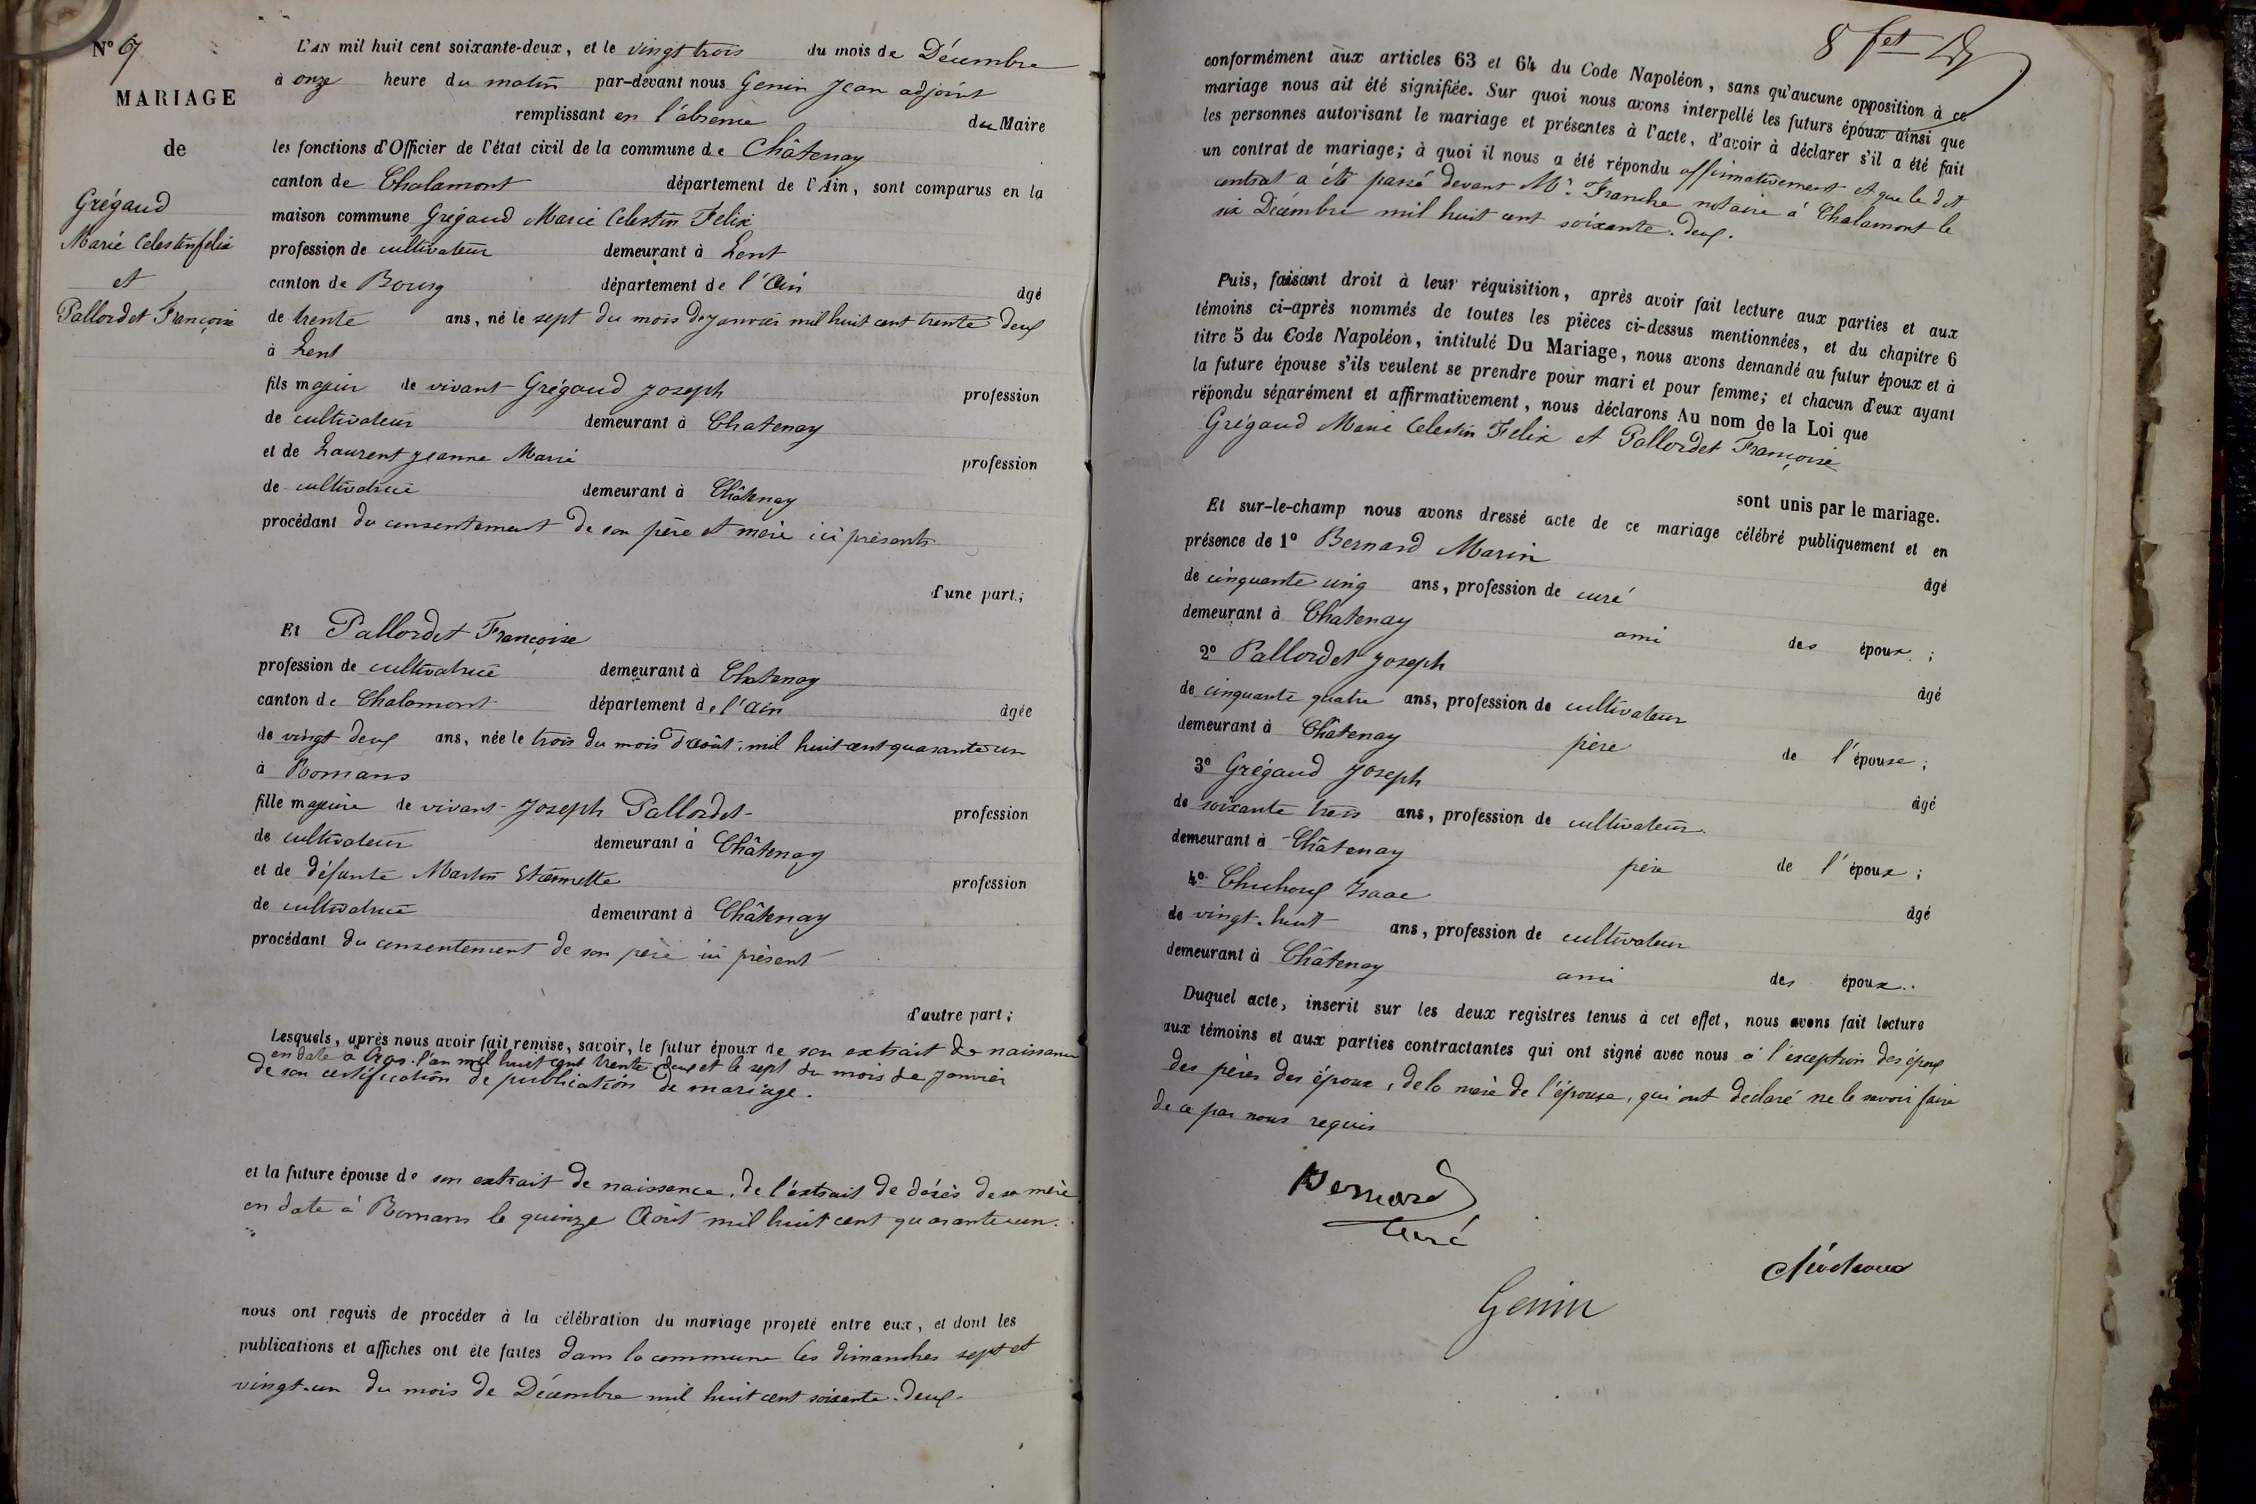 N° 67
MARIAGE
de
Grégaud
Marie Celestin felix
et
Pallordet Françoise
L'AN mil huit cent soixante-deux, et le vingt trois du mois de Décembre
à onze heure du matin par-devant nous Genin Jean adjoint
remplissant en l'absence du Maire
les fonctions d'Officier de l'état civil de la commune de Châtenay
canton de Chalamont département de l'Ain, sont comparus en la
maison commune Grégaud Marie Celestin Felix
profession de cultivateur demeurant à Lent
canton de Bourg département de l'Ain âgé
de trente ans, né le sept du mois de janvier mil huit cent trente deux
à Lent
fils majeur de vivant Grégaud Joseph profession
de cultivateur demeurant à Chatenay
et de Laurent Jeanne Marie profession
de cultivatrice demeurant à Châtenay
procédant du consentement de son père et mère ici présents
d'une part;
Et Pallordet Françoise
profession de cultivatrice demeurant à Chatenay
canton de Chalamont département de l'Ain âgée
de vingt deux ans, née le trois du mois d'Août mil huit cent quarante un
à Romans
fille majeure de vivant Joseph Pallordet profession
de cultivateur demeurant à Châtenay
et de défunte Martin Etiennette profession
de cultivatrice demeurant à Châtenay
procédant du consentement de son père ici présent
d'autre part;
Lesquels, après nous avoir fait remise, savoir, le futur époux de son extrait de naissance
en date à l'an mil huit cent trente deux et le sept du mois de janvier
de son certification de publication de mariage.
et la future épouse de son extrait de naissance, de l'extrait de décès de sa mère
en date à Romans le quinze Août mil huit cent quarante un.
nous ont requis de procéder à la célébration du mariage projeté entre eux, et dont les
publications et affiches ont été faites dans la commune les dimanches sept et
vingt-un du mois de Décembre mil huit cent soixante-deux.
8 fet
conformément aux articles 63 et 64 du Code Napoléon, sans qu'aucune opposition à ce
mariage nous ait été signifiée. Sur quoi nous avons interpellé les futurs époux ainsi que
les personnes autorisant le mariage et présentes à l'acte, d'avoir à déclarer s'il a été fait
un contrat de mariage; à quoi il nous a été répondu affirmativement et que le dit
contrat a été passé devant Mr Franche notaire à Chalamont le
six Décembre mil huit cent soixante-deux.
Puis, faisant droit à leur réquisition, après avoir fait lecture aux parties et aux
témoins ci-après nommés de toutes les pièces ci-dessus mentionnées, et du chapitre 6
titre 5 du Code Napoléon, intitulé Du Mariage, nous avons demandé au futur époux et à
la future épouse s'ils veulent se prendre pour mari et pour femme; et chacun d'eux ayant
répondu séparément et affirmativement, nous déclarons Au nom de la Loi que
Grégaud Marie Celestin Felix et Pallordet Françoise
sont unis par le mariage.
Et sur-le-champ nous avons dressé acte de ce mariage célébré publiquement et en
présence de 1° Bernard Marin âgé
de cinquante cinq ans, profession de curé
demeurant à Chatenay ami des époux;
2° Pallordet Joseph âgé
de cinquante quatre ans, profession de cultivateur
demeurant à Châtenay père de l'épouse;
3° Grégaud Joseph âgé
de soixante trois ans, profession de cultivateur
demeurant à Châtenay père de l'époux;
4° Isaac âgé
de vingt-huit ans, profession de cultivateur
demeurant à Châtenay ami des époux.
Duquel acte, inscrit sur les deux registres tenus à cet effet, nous avons fait lecture
aux témoins et aux parties contractantes qui ont signé avec nous à l'exception des époux
des pères des époux, de la mère de l'épouse, qui ont déclaré ne le savoir faire
de ce par nous requis
Bernard
Curé
Genin